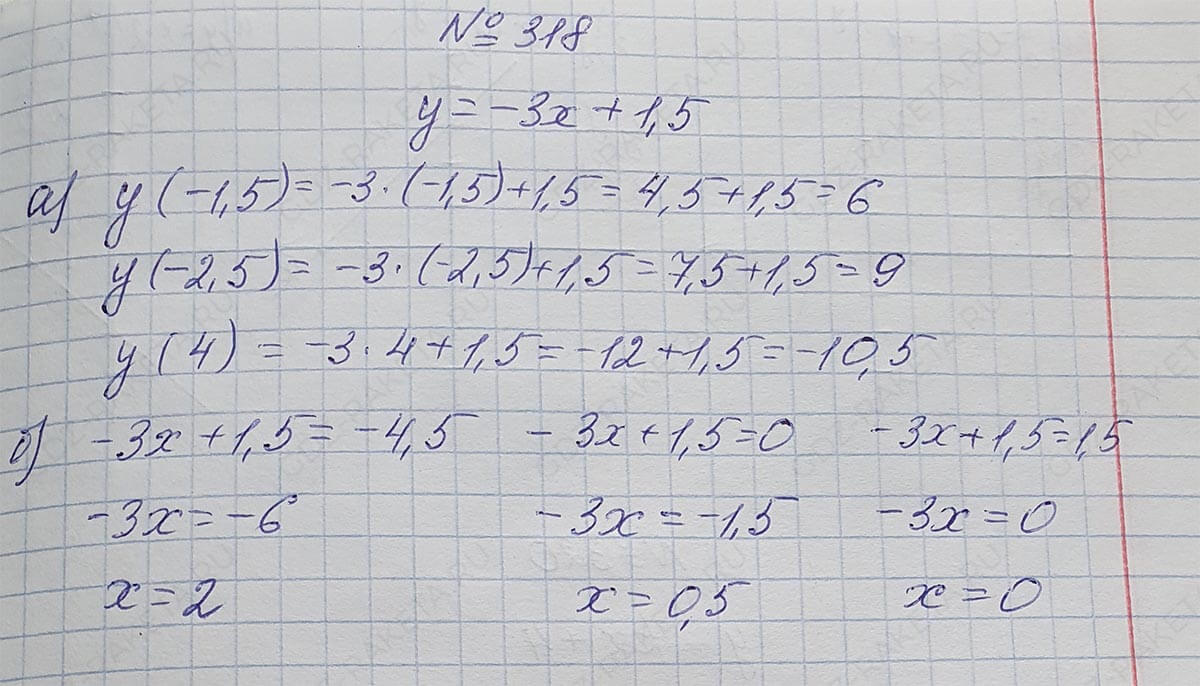 № 318
y = -3x + 1,5
а) y(-1,5) = -3·(-1,5)+1,5 = 4,5+1,5 = 6
y(-2,5) = -3·(-2,5)+1,5 = 7,5+1,5 = 9
y(4) = -3·4+1,5 = -12+1,5 = -10,5
б) -3x+1,5 = -4,5 -3x+1,5=0 -3x+1,5=1,5
-3x = -6 -3x = -1,5 -3x = 0
x = 2 x = 0,5 x = 0